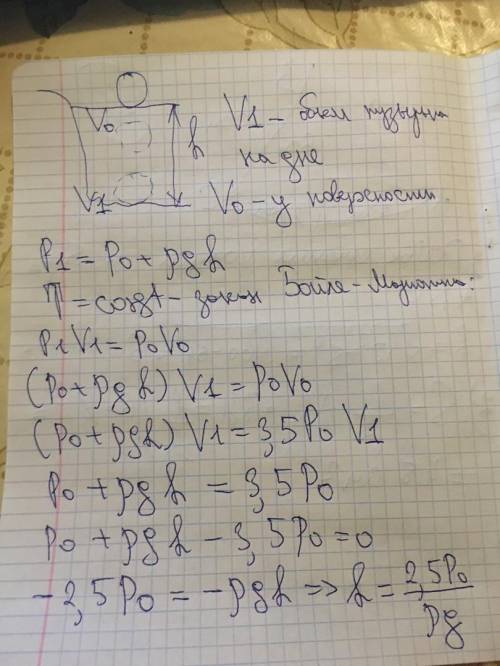 V0
V1
h
V1 – объём пузырька
на дне
V0 – у поверхности.
P1 = P0 + ρgh
T = const – закон Бойля – Мариотта:
P1V1 = P0V0
(P0 + ρgh) V1 = P0V0
(P0 + ρgh) V1 = 3,5P0 V1
P0 + ρgh = 3,5P0
P0 + ρgh – 3,5P0 = 0
– 2,5P0 = – ρgh => h = 2,5P0 / ρg